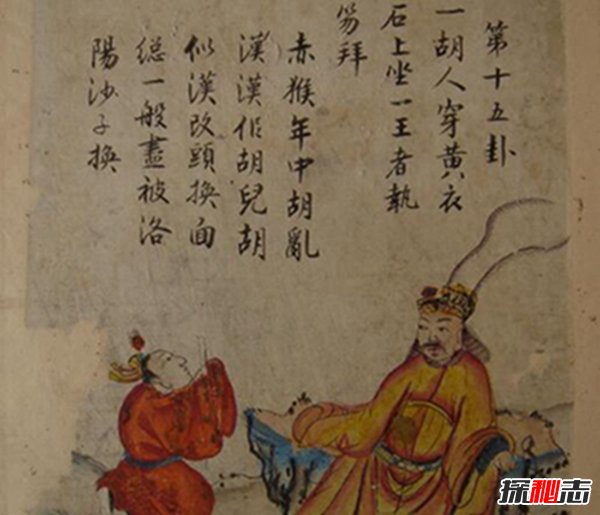 第十五卦
一胡人穿黄衣
石上坐一王者執
笏拜
赤猴年中胡亂
漢漢作胡兒胡
似漢改頭換面
総一般盡被洛
陽沙子換
探秘志